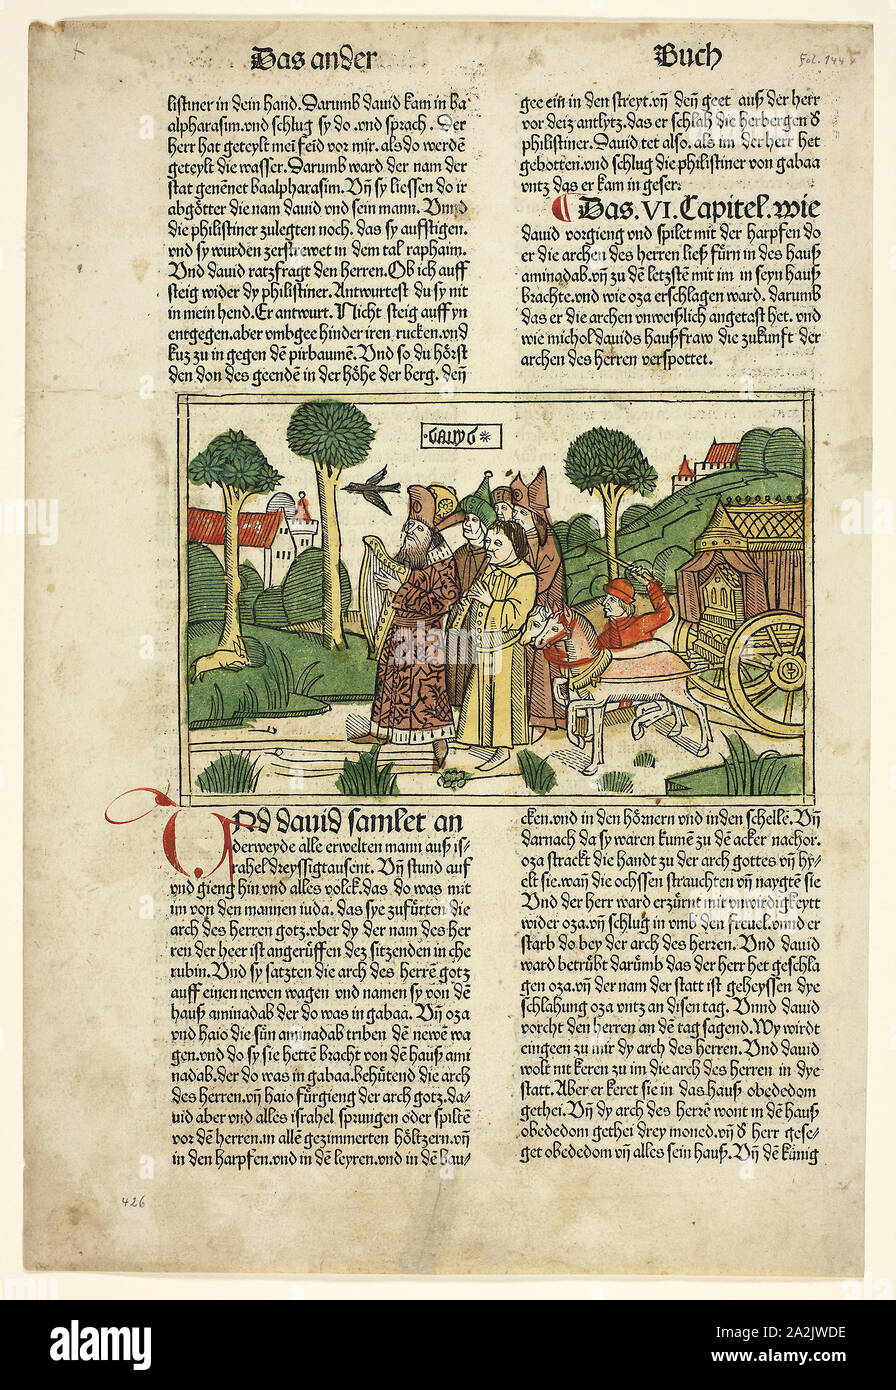 Das ander Buch
Fol. 144
listiner in dein hand. Darumb dauid kam in ba
alpharasim. vnd schlug sy do. vnd sprach. Der
herr hat geteylt mei feid vor mir. als do werdē
geteylt die wasser. Darumb ward der nam der
stat genēnet baalpharasim. Vn̄ sy liessen do ir
abgötter die nam dauid vnd sein mann. Vnnd
die philistiner zulegten noch. das sy aufstigen.
vnd sy wurden zerstrewet in dem tal raphaim.
Vnd dauid ratzfragt den herren. Ob ich auff
steig wider dy philistiner. Antwurtest du sy nit
in mein hend. Er antwurt. Nicht steig auff yn
entgegen. aber vmbgee hinder iren rucken. vnd
kuz zu in gegen dē pirbaumē. Vnd so du hörst
den don des geendē in der höhe der berg. deñ
gee ein in den streyt. vn̄ deñ geet auß der herr
vor deiz antlytz. das er schlah die herbergen d̕
philistiner. Dauid tet also. als im der herr het
gebotten. vnd schlug die philistiner von gabaa
vntz das er kam in geser.
Das. VI. Capitel. wie
dauid vorgieng vnd spilet mit der harpfen do
er die archen des herren ließ fürn in des hauß
aminadab. vn̄ zu dē letzstē mit im in seyn hauß
brachte. vnd wie oza erschlagen ward. darumb
das er die archen vnweißlich angetast het. vnd
wie michol dauids haußfraw die zukunft der
archen des herren verspottet.
DAVID
Vnd dauid samlet an
derweyde alle erwelten mann auß is-
rahel dreyssigtausent. Vn̄ stund auf
vnd gieng hin. vnd alles volck. das do was mit
im von den mannen iuda. das sye zufürten die
arch des herren gotz. vber dy der nam des her
ren der heer ist angerüffen dez sitzenden in che
rubin. Vnd sy satzten die arch des herrē gotz
auff einen newen wagen vnd namen sy von dē
hauß aminadab der do was in gabaa. Vn̄ oza
vnd haio die sün aminadab triben dē newē wa
gen. vnd do sy sie hettē bracht von dē hauß ami
nadab. der do was in gabaa. behütend die arch
des herren. vn̄ haio fürgieng der arch gotz. da-
uid aber vnd alles israhel sprungen oder spiltē
vor dē herren. in allē gezimmerten höltzern. vn̄
in den harpfen. vnd in dē leyren. vnd in dē bau-
cken. vnd in den hörnern vnd in den schelle. Vn̄
darnach da sy waren kumē zu dē acker nachor.
oza strackt die handt zu der arch gottes vn̄ hy-
elt sie. wañ die ochssen strauchten vn̄ naygtē sie
Vnd der herr ward erzürnt mit vnwirdigkeytt
wider oza. vn̄ schlug in vmb den freuel. vnnd er
starb do bey der arch des herren. Vnd dauid
ward betrübt darümb das der herr het geschla
gen oza. vn̄ der nam der statt ist geheyssen dye
schlahung oza vntz an disen tag. Vnnd dauid
vorcht den herren an dē tag sagend. Wy wirdt
eingeen zu mir dy arch des herren. Vnd dauid
wolt nit keren zu im die arch des herren in dye
statt. Aber er keret sie in das hauß obededom
gethei. Vn̄ dy arch des herrē wont in dē hauß
obededom gethei drey moned. vn̄ d̕ herr gese-
get obededom vn̄ alles sein hauß. Vn̄ dē künig
426
alamy
Image ID: 2A2JWDE
www.alamy.com